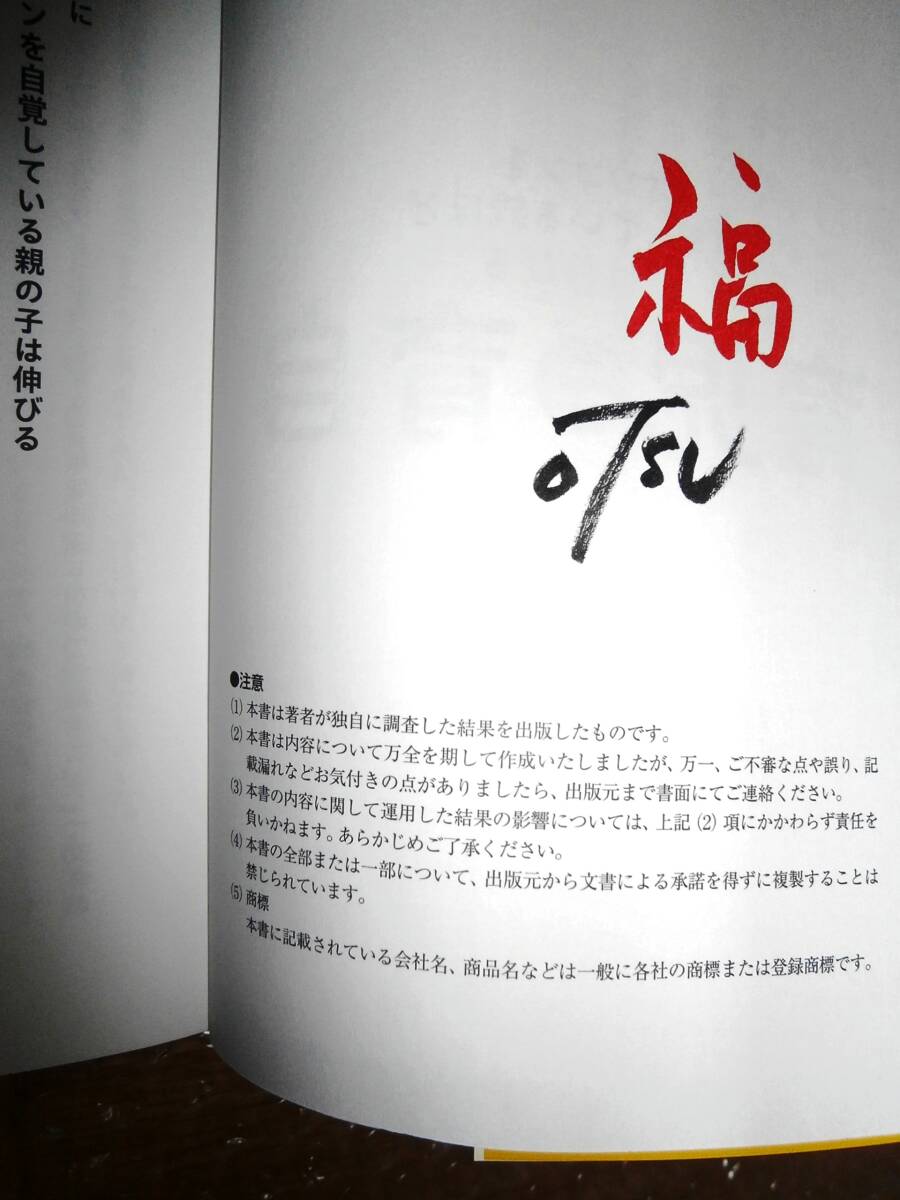 に
ンを自覚している親の子は伸びる
福
OTSU
●注意
(1) 本書は著者が独自に調査した結果を出版したものです。
(2) 本書は内容について万全を期して作成いたしましたが、万一、ご不審な点や誤り、記
載漏れなどお気付きの点がありましたら、出版元まで書面にてご連絡ください。
(3) 本書の内容に関して運用した結果の影響については、上記 (2) 項にかかわらず責任を
負いかねます。あらかじめご了承ください。
(4) 本書の全部または一部について、出版元から文書による承諾を得ずに複製することは
禁じられています。
(5) 商標
本書に記載されている会社名、商品名などは一般に各社の商標または登録商標です。